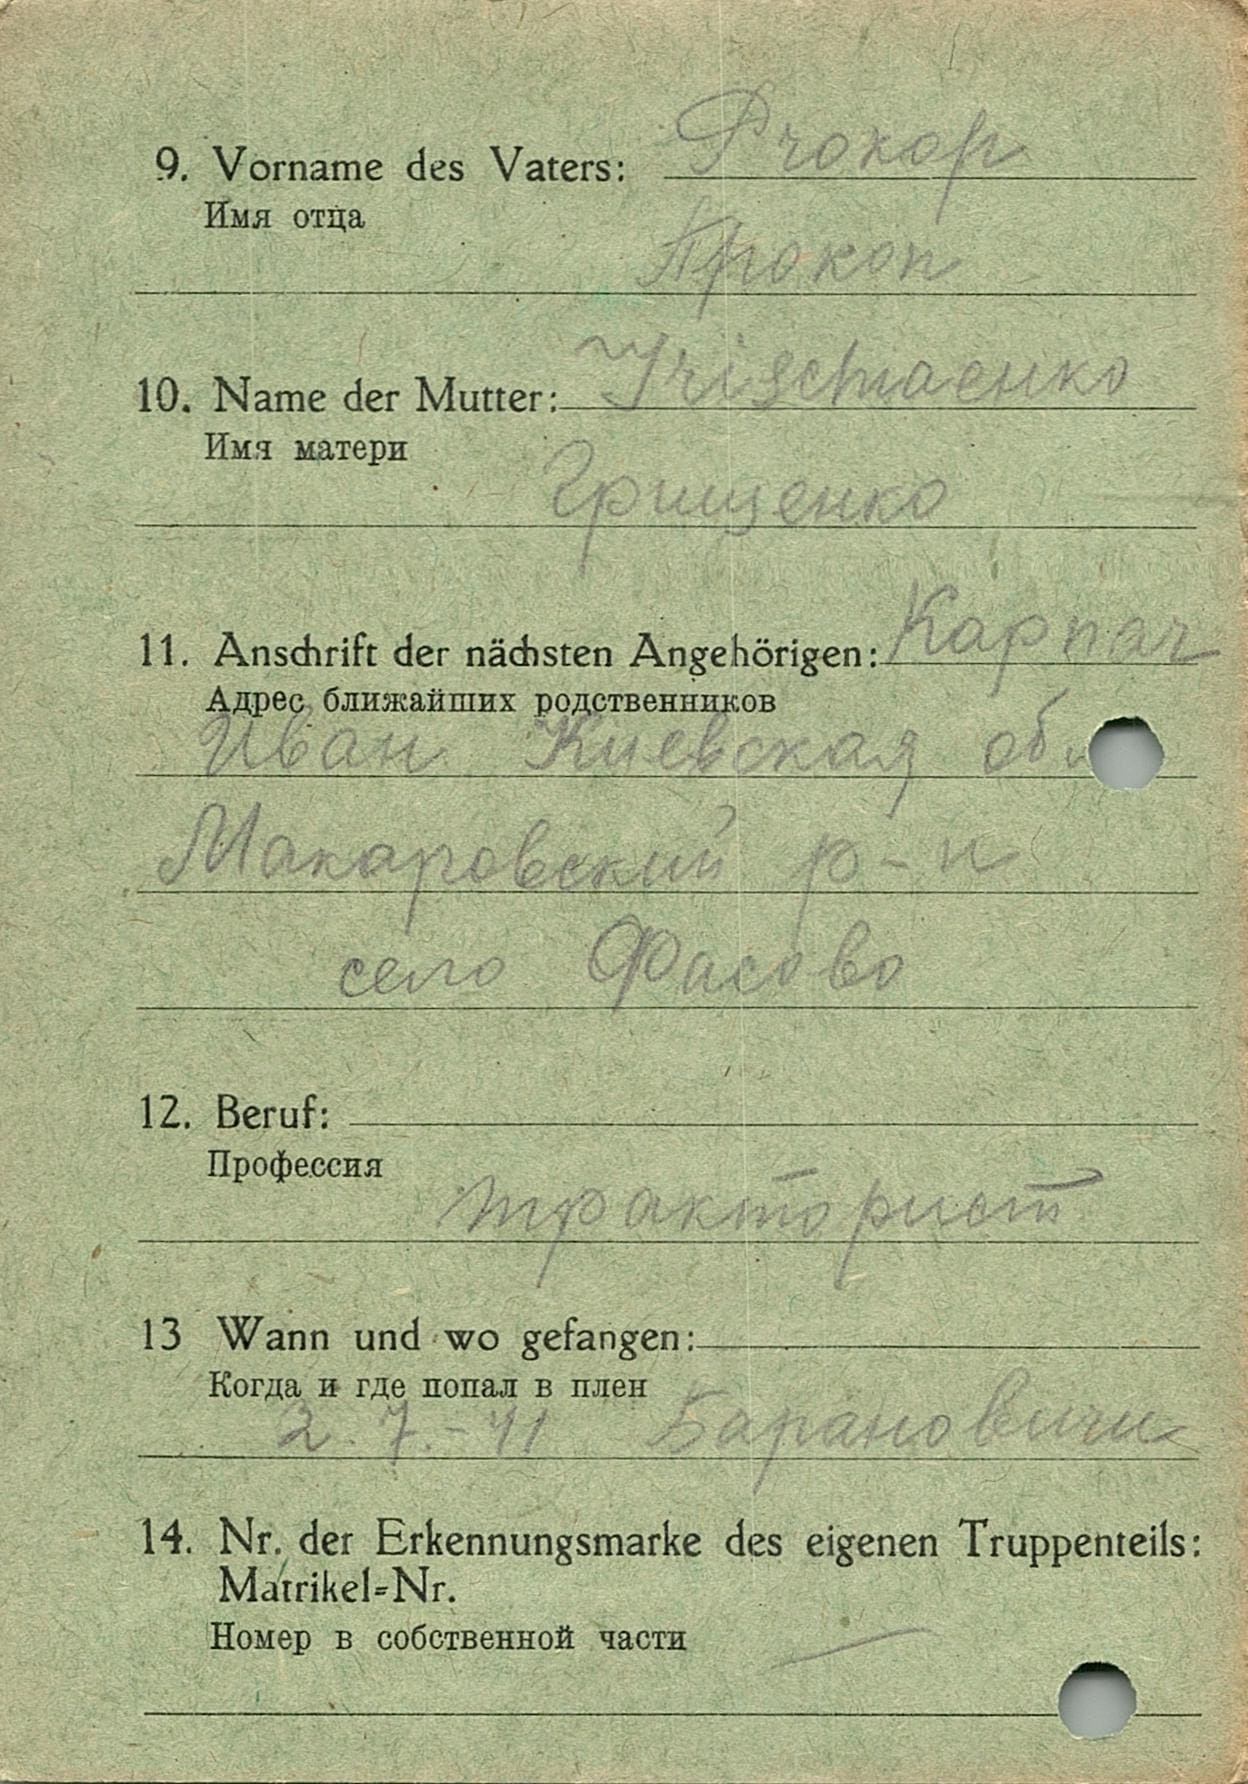 9. Vorname des Vaters: Prokop
Имя отца
Прокоп
10. Name der Mutter:
Имя матери
Грищенко
11. Anschrift der nächsten Angehörigen: Карпач
Адрес ближайших родственников
Иван Киевская обл
Макаровский р-н
село Фасово
12. Beruf:
Профессия
тракторист
13 Wann und wo gefangen:
Когда и где попал в плен
2.7.-41 Барановичи
14. Nr. der Erkennungsmarke des eigenen Truppenteils:
Matrikel=Nr.
Номер в собственной части
—